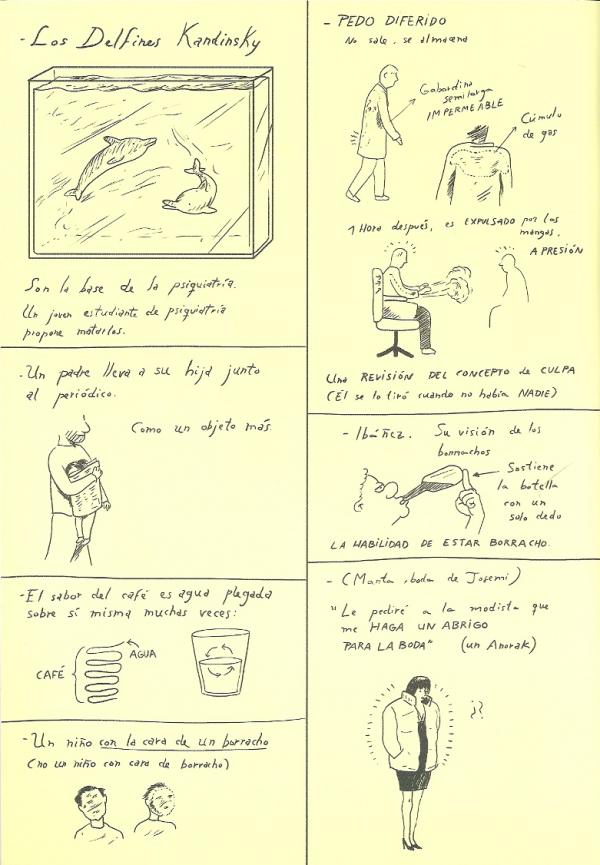 - Los Delfines Kandinsky
Son la base de la psiquiatría.
Un joven estudiante de psiquiatría
propone matarlos.
- Un padre lleva a su hija junto
al periódico.
Como un objeto más.
- El sabor del café es agua plegada
sobre sí misma muchas veces:
AGUA
CAFÉ
- Un niño con la cara de un borracho
(no un niño con cara de borracho)
- PEDO DIFERIDO
No sale, se almacena
Gabardina
semilarga
IMPERMEABLE
Cúmulo
de gas
1 Hora después, es EXPULSADO por las
mangas.
A PRESIÓN
Una REVISIÓN DEL CONCEPTO de CULPA
(Él se lo tiró cuando no había NADIE)
- Ibáñez. Su visión de los
borrachos
Sostiene
la botella
con un
solo dedo
LA HABILIDAD DE ESTAR BORRACHO.
- (Marta, boda de Josemi)
"Le pediré a la modista que
me HAGA UN ABRIGO
PARA LA BODA" (un Anorak)